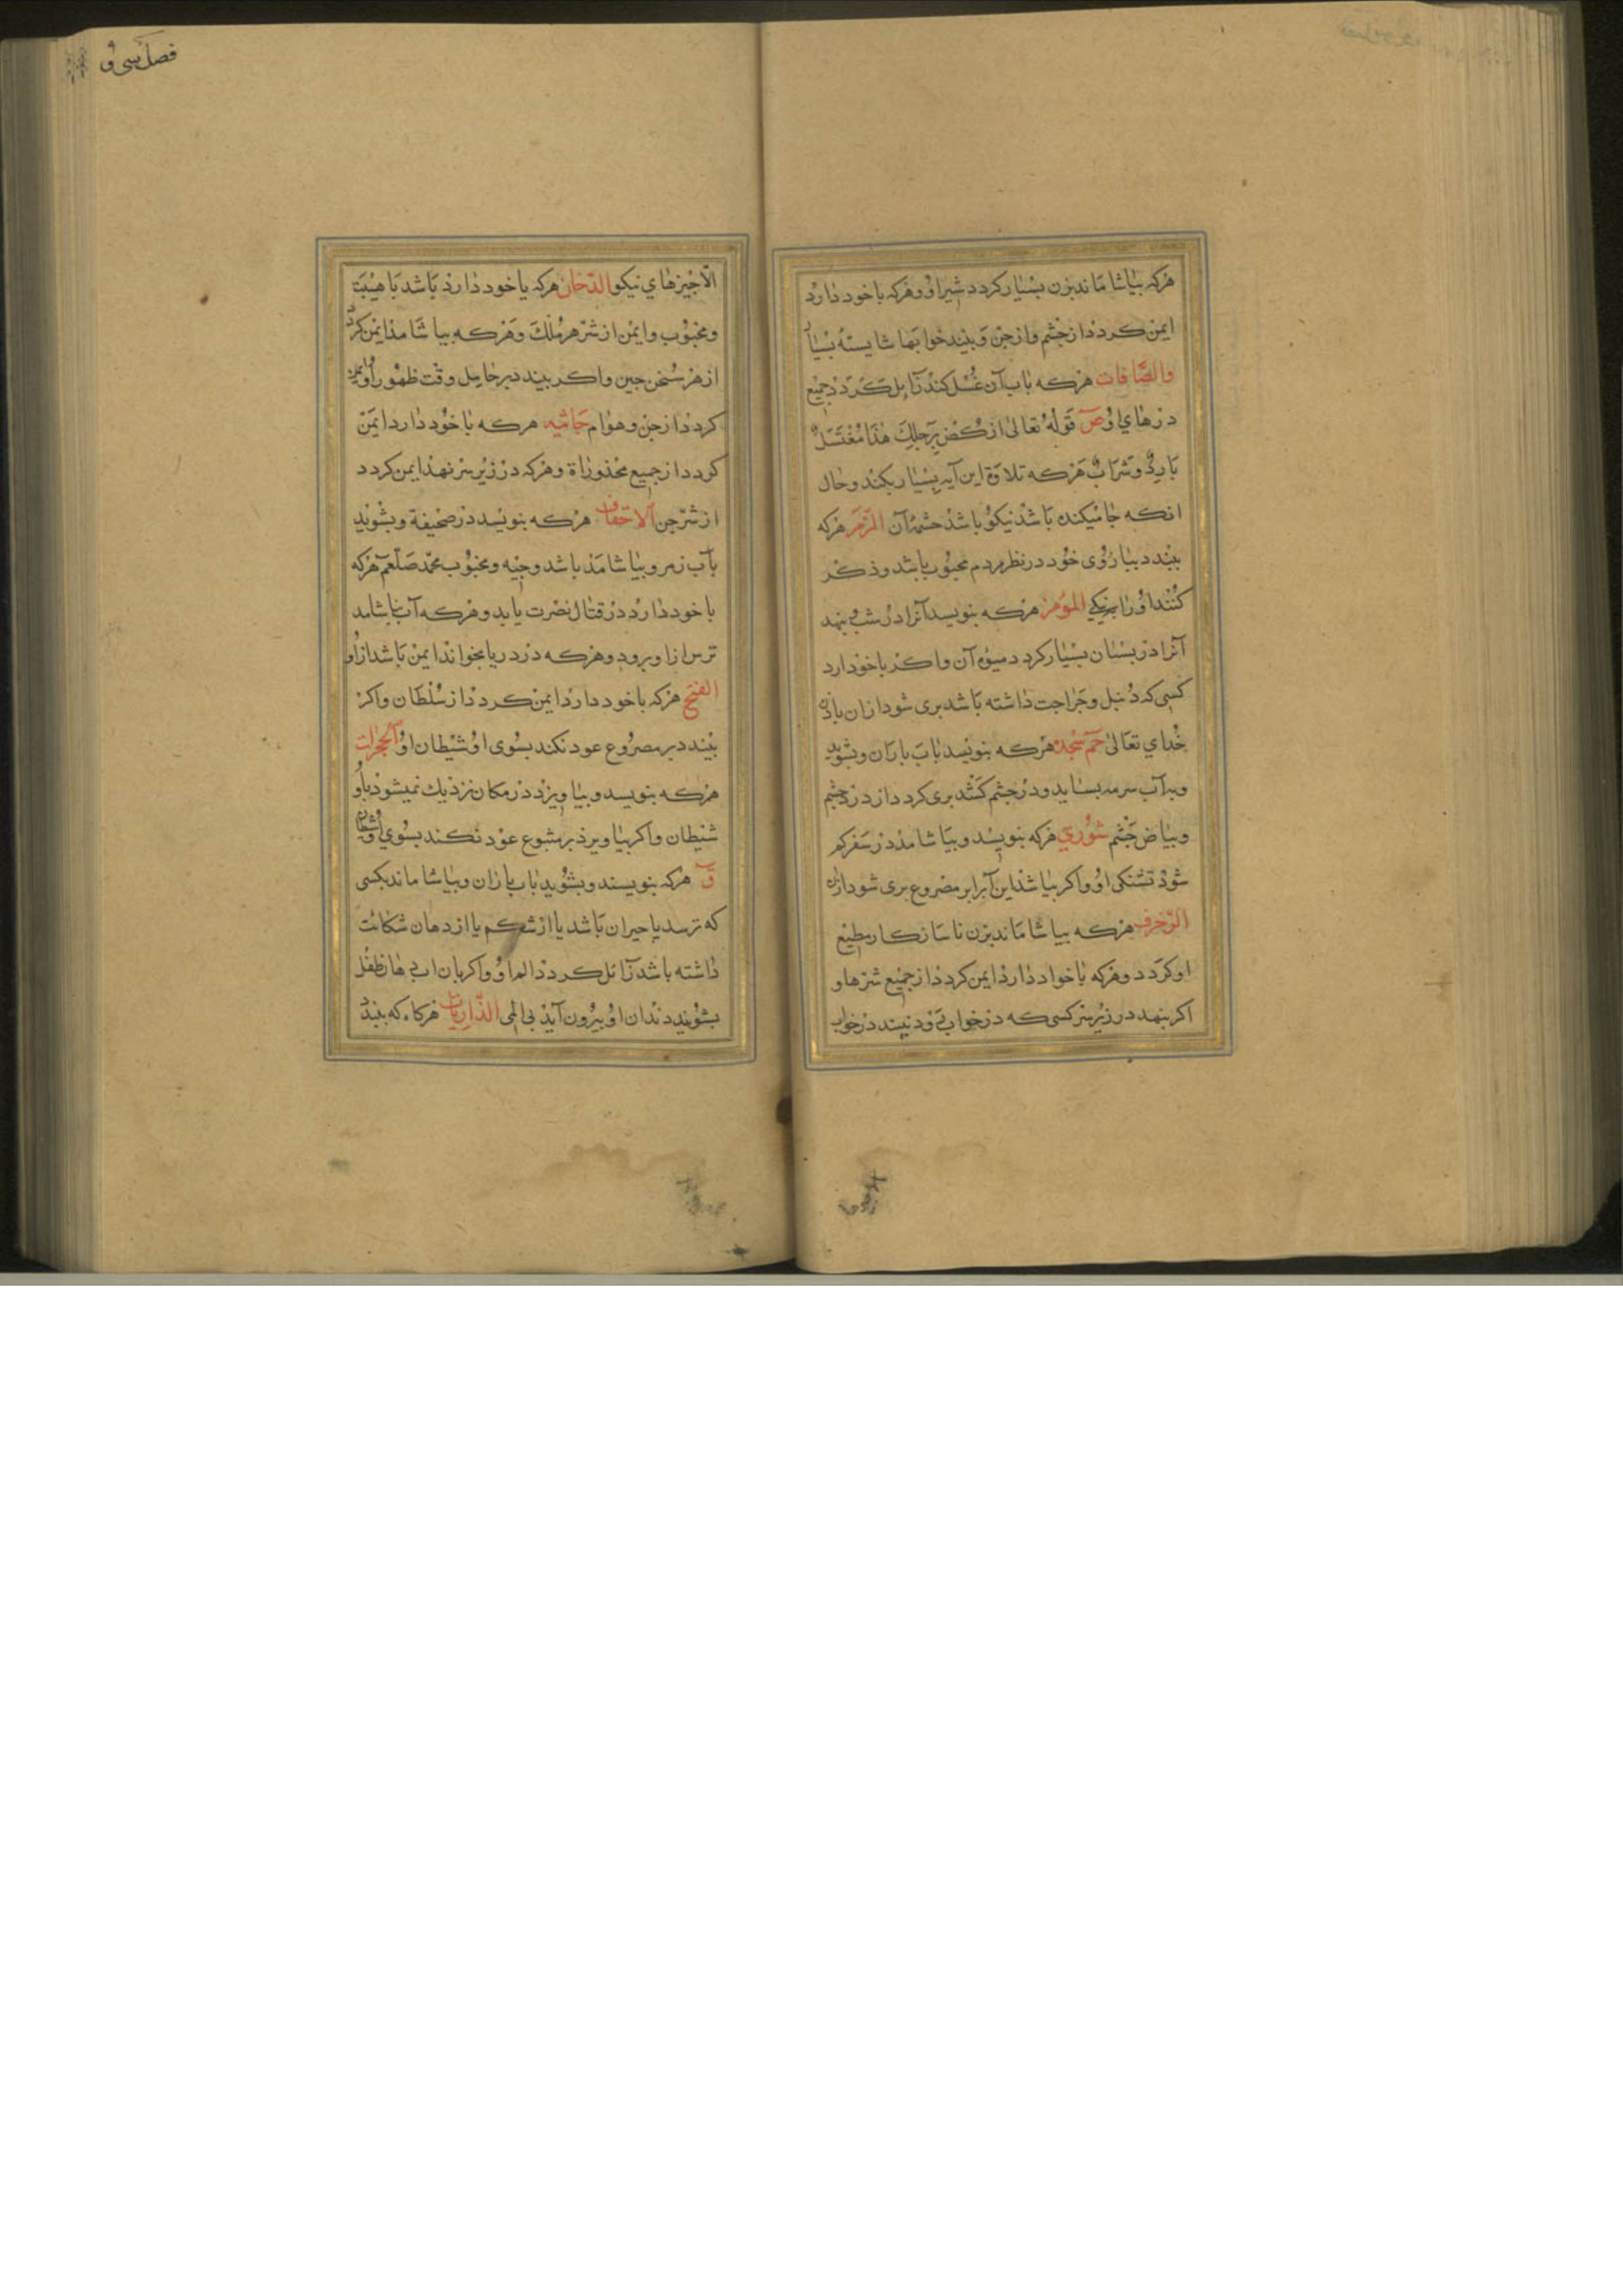 هرکه بیاشاماند بزن بسیار کردد شیر او و هرکه با خود دارد
ایمن کردد از خشم و از جن و بیند خوابها شایسته بسیار
والصّافات هرکه باب آن غسل کند زایل کردد جمیع
دردهای او ص قوله تعالی ارکض برجلك هذا مغتسل
بارد و شراب هرکه تلاوة این آیه بسیار بکند و حال
انکه جا میکنده باشد نیکو باشد چشمهٔ آن الزمر هرکه
ببندد ببازوی خود در نظر مردم محبوب باشد و ذکر
کنند او را بنیکی المؤمن هرکه بنویسد آنرا در شب بنهد
آنرا در بستان بسیار کردد میوه آن و اکر با خود دارد
کسی که دنبل و جراحت داشته باشد بری شود از ان باذن
خدای تعالی حم سجده هرکه بنویسد باب باران و بشوید
و بدآب سرمه بساید و در چشم کشد بری کردد از درد چشم
و بیاض چشم شوری هرکه بنویسد و بیاشامد در سفر کم
شود تشنکی او و اکر بپاشد این آبرا بر مصروع بری شود ازان
الزخرف هرکه بیاشاماند بزن ناسازکار مطیع
او کردد و هرکه با خود دارد ایمن کردد از جمیع شرها و
اکر بنهد در زیر سر کسی که در خواب بود نبیند در خواب
فصل سی و
الّا چیزهای نیکو الدّخان هرکه با خود دارد باشد با هیبت
و محبوب و ایمن از شرّ هر ملك و هرکه بیاشامد ایمن کردد
از هر سخن چین و اکر ببندد بر حامل وقت ظهور او ایمن
کردد از جن و هوام جاثیه هرکه با خود دارد ایمن
کردد از جمیع محذوراة و هرکه در زیر سر نهد ایمن کردد
از شرّ جن الاحقاف هرکه بنویسد در صحیفة و بشوید
بآب زمزم و بیاشامد باشد وجیه و محبوب محمّد صلّعم هرکه
با خود دارد در قتال نصرت یابد و هرکه آب بیاشامد
ترس از او برود و هرکه در دریا بخواند ایمن باشد از او
الفتح هرکه با خود دارد ایمن کردد از سلطان و اکر
ببندد بر مصروع عود نکند بسوی او شیطان او الحجرات
هرکه بنویسد و بیاویزد در مکان نزدیك نمیشود باو
شیطان و اکر بیاویزد بر متبوع عود نکند بسوی او شیطان
ق هرکه بنویسند و بشوید باب باران و بیاشاماند بکسی
که ترسد یا حیران باشد یا از شکم یا از دهان شکایت
داشته باشد زائل کردد الم او و اکر بان اب دهان طفل
بشویند دندان او بیرون آید بی المی الذّاریات هرکاه که ببندد